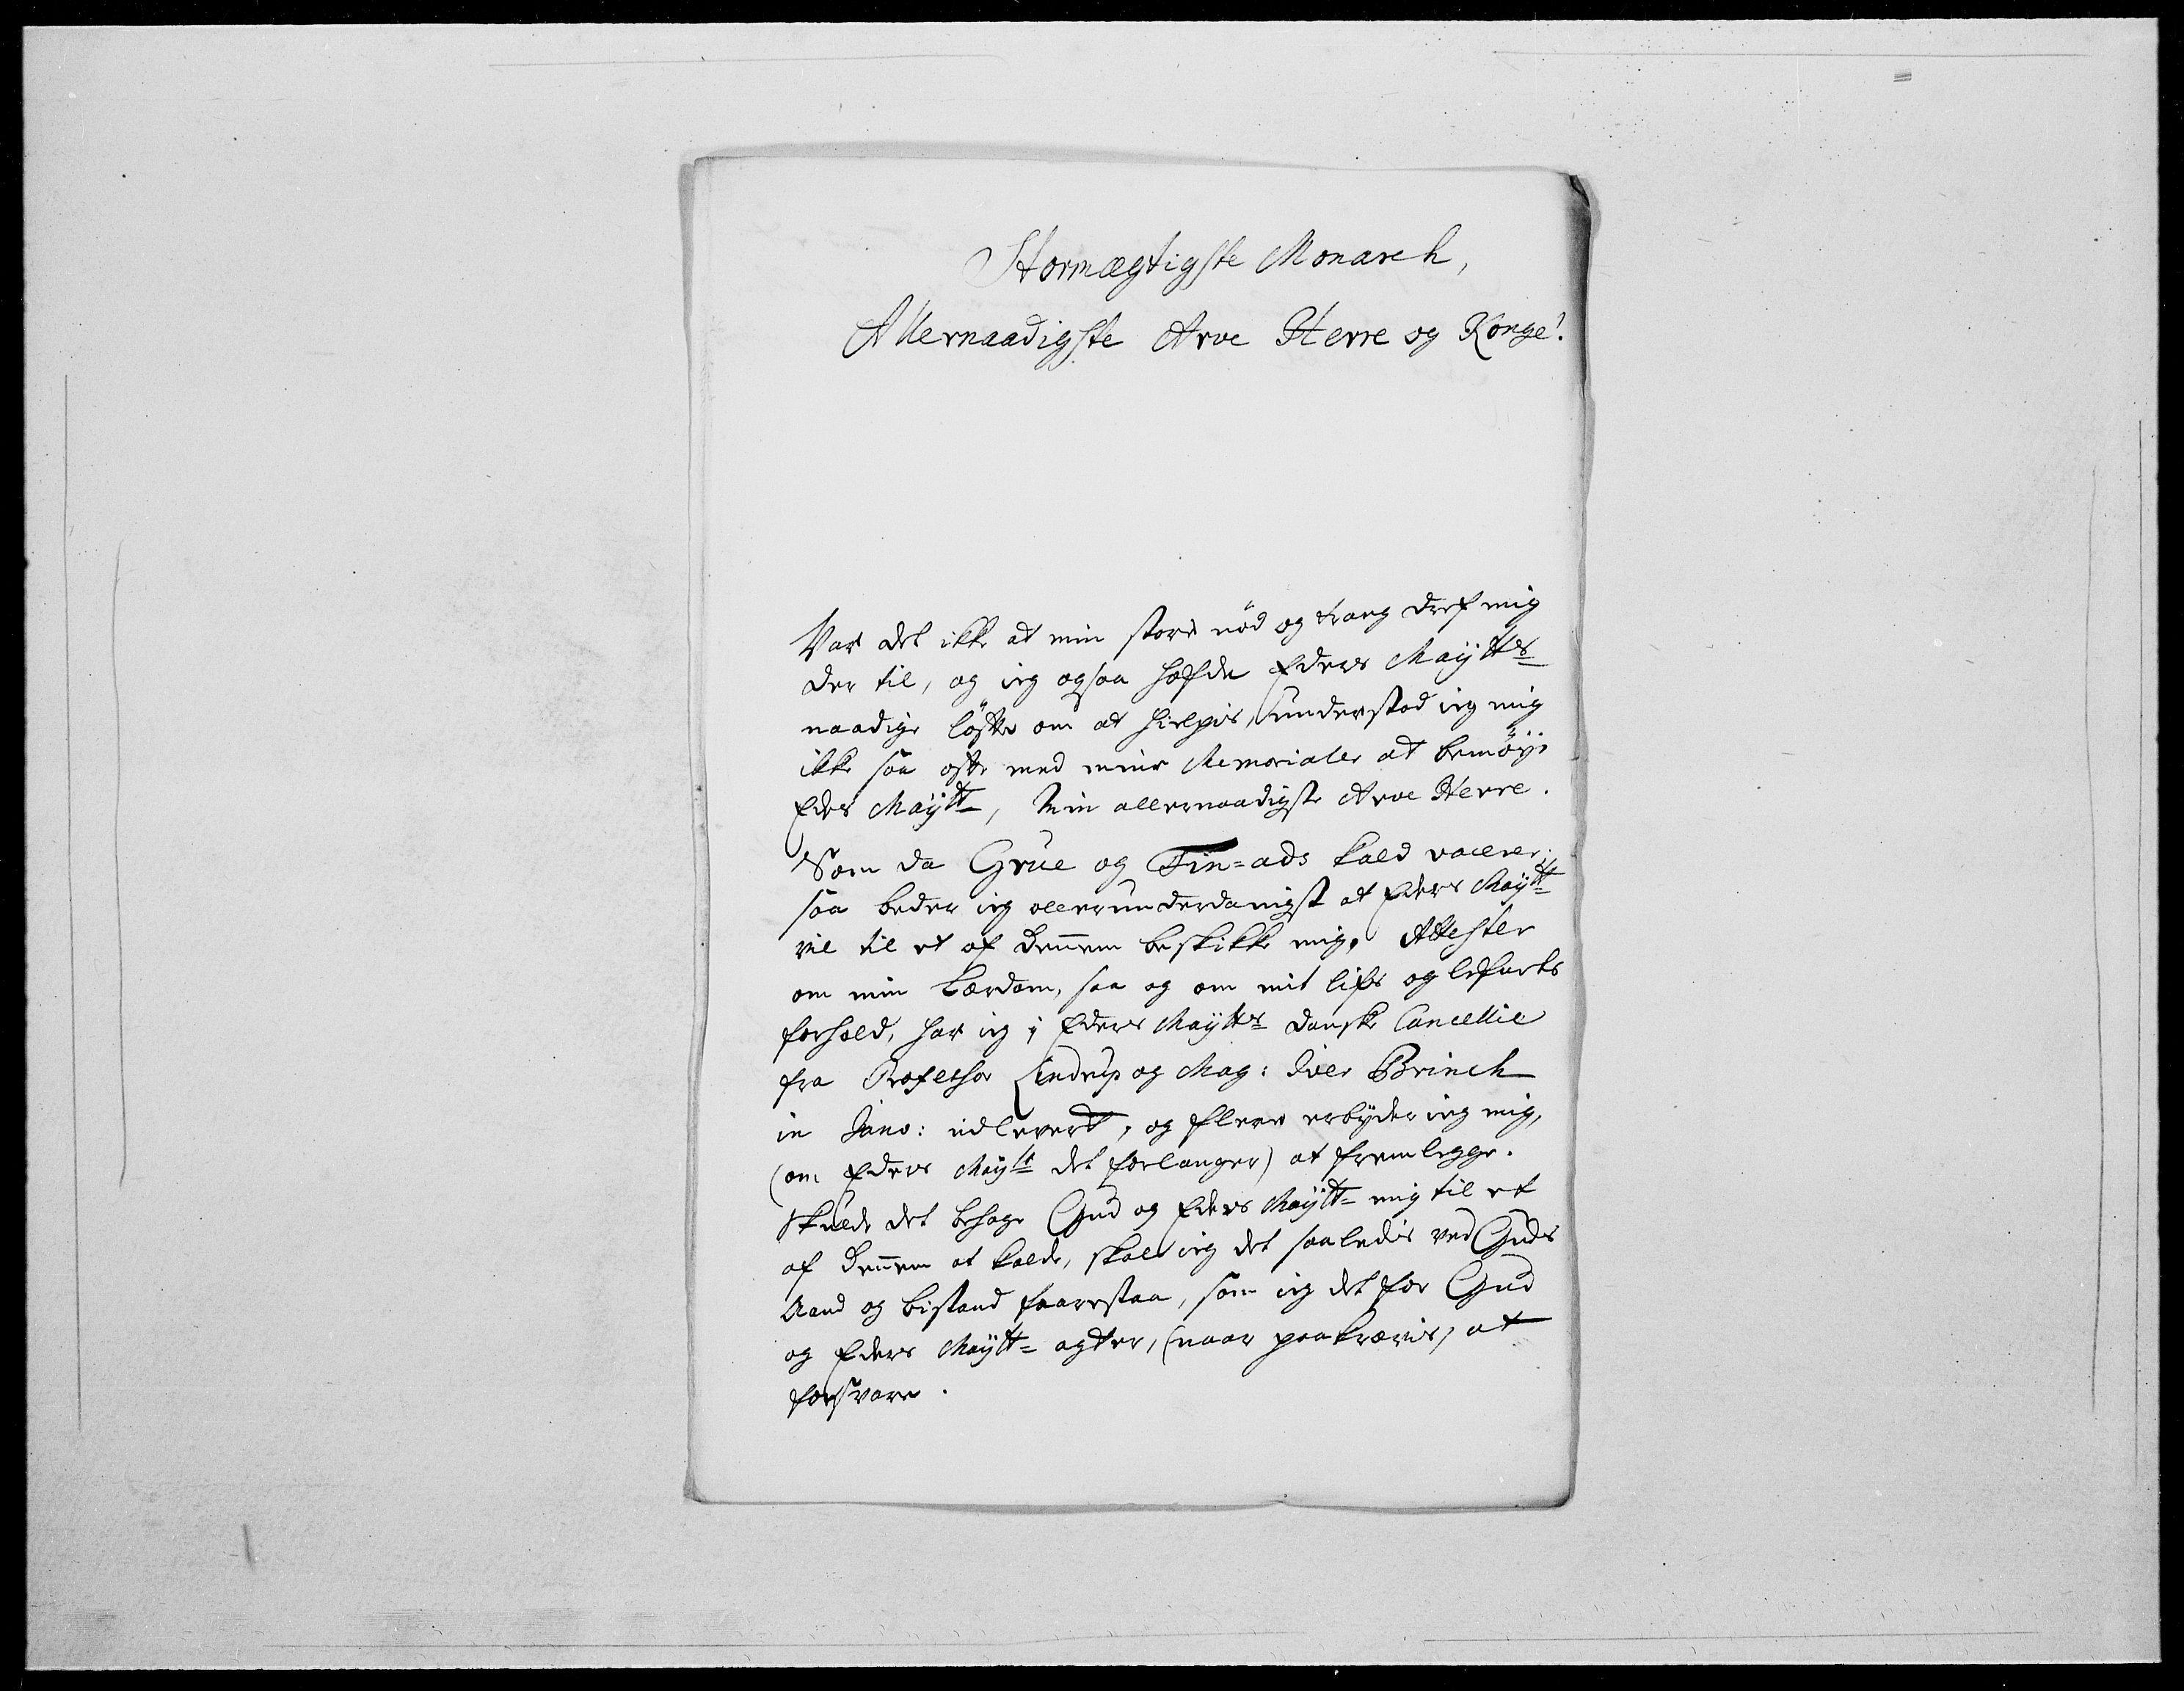 Stormægtigste Monarch,
Allernaadigste Arve Herre og Konge!
Var det ikke at min store nöd og trang dref mig
der til, og ieg ogsaa hafde Eders Maÿtts
naadige löfte om at hielpis, understod ieg mig
ikke saa ofte med mine Memorialer at bemöÿe
Eders Maÿtt, Min allernaadigste Arve Herre.
Som da Grue og Tin=ads kald vacerer
saa beder ieg allerunderdanigst at Eders Maÿtt
vil til et af Dennem beskikke mig. Attester
om min Lærdom, saa og om mit lifs og lefnets
forhold, har ieg i Eders Maÿtts danske Cancellie
fra Professor Lindrup og Mag: Iver Brinch
in Janv: udlevert, og flere erbÿder ieg mig,
(om Eders Maÿtt det forlanger) at fremlegge.
Skulde det behage Gud og Eders Maÿtt mig til et
af Dennem at kalde, skal ieg det saaledis ved Guds
Aand og bistand faarestaa, som ieg det for Gud
og Eders Maÿtt agter, (naar paakrævis) at
forsvare.